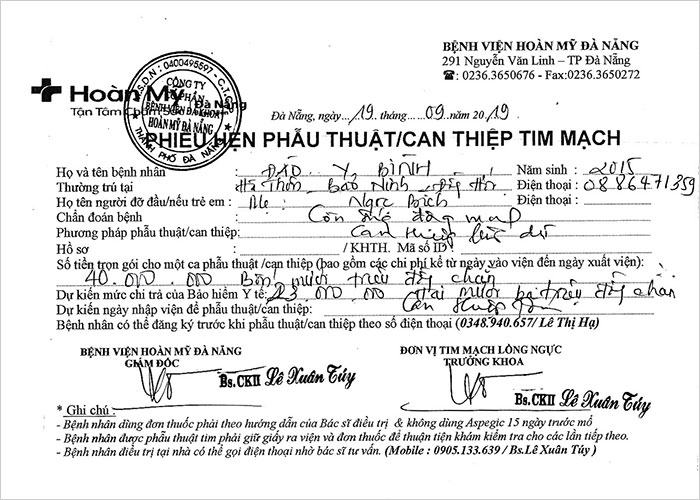 BỆNH VIỆN HOÀN MỸ ĐÀ NẴNG
291 Nguyễn Văn Linh – TP Đà Nẵng
☎: 0236.3650676 - Fax:0236.3650272
Hoàn Mỹ
Đà Nẵng
Tận Tâm
M.S.D.N: 0400495597 - C.T.C.P
CÔNG TY
CỔ PHẦN
BỆNH VIỆN ĐA KHOA
HOÀN MỸ ĐÀ NẴNG
THÀNH PHỐ ĐÀ NẴNG
Đà Nẵng, ngày...19...tháng...09...năm 2019
PHIẾU HẸN PHẪU THUẬT/CAN THIỆP TIM MẠCH
Họ và tên bệnh nhân : ĐÀO Y BÌNH Năm sinh : 2015
Thường trú tại : Hà Thôn Bảo Ninh Đồng Hới Điện thoại : 0886471359
Họ tên người đỡ đầu/nếu trẻ em : Mẹ : Ngọc Bích Điện thoại :
Chẩn đoán bệnh : Còn ống động mạch
Phương pháp phẫu thuật/can thiệp: Can thiệp bít dù
Hồ sơ : / KHTH. Mã số ID :
Số tiền trọn gói cho một ca phẫu thuật /can thiệp (bao gồm các chi phí kể từ ngày vào viện đến ngày xuất viện):
40.000.000 Bốn mươi triệu đồng chẵn
Dự kiến mức chi trả của Bảo hiểm Y tế: 23.000.000 Hai mươi ba triệu đồng chẵn
Dự kiến ngày nhập viện để phẫu thuật/can thiệp: Can thiệp
Bệnh nhân có thể đăng ký trước khi phẫu thuật/can thiệp theo số điện thoại (0348.940.657/ Lê Thị Hạ)
BỆNH VIỆN HOÀN MỸ ĐÀ NẴNG
GIÁM ĐỐC
Bs.CKII Lê Xuân Túy
ĐƠN VỊ TIM MẠCH LỒNG NGỰC
TRƯỞNG KHOA
Bs.CKII Lê Xuân Túy
* Ghi chú :
- Bệnh nhân dùng đơn thuốc phải theo hướng dẫn của Bác sĩ điều trị & không dùng Aspegic 15 ngày trước mổ
- Bệnh nhân được phẫu thuật tim phải giữ giấy ra viện và đơn thuốc để thuận tiện khám kiểm tra cho các lần tiếp theo.
- Bệnh nhân điều trị tại nhà có thể gọi điện thoại nhờ bác sĩ tư vấn. (Mobile : 0905.133.639 / Bs.Lê Xuân Túy )